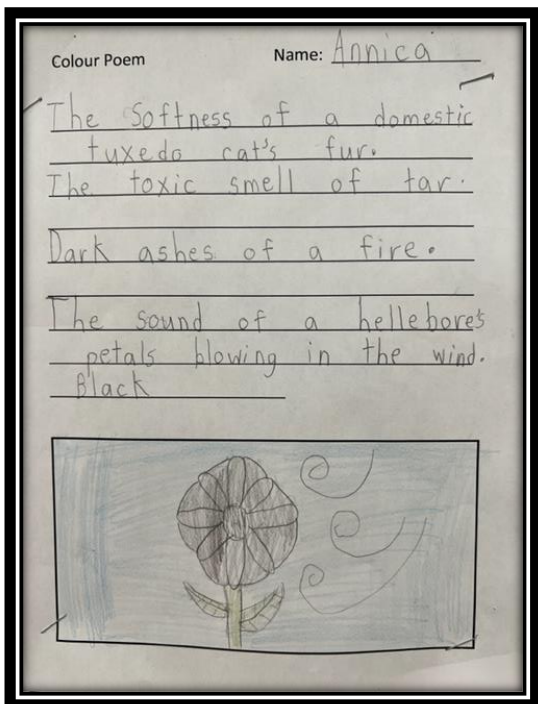 Colour Poem
Name: Annica
The Softness of a domestic
tuxedo cat's fur.
The toxic smell of tar.
Dark ashes of a fire.
The sound of a hellebore's
petals blowing in the wind.
Black